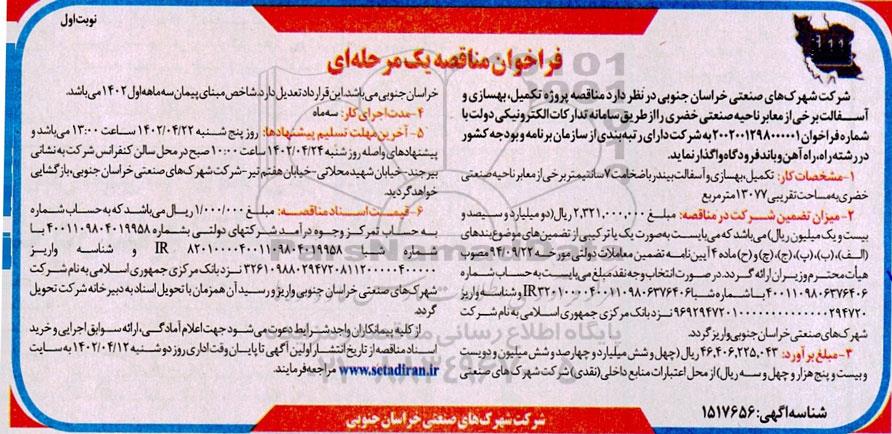 نوبت اول
فراخوان مناقصه یک مرحله‌ای
شرکت شهرک‌های صنعتی خراسان جنوبی در نظر دارد مناقصه پروژه تکمیل، بهسازی و
آسفالت برخی از معابر ناحیه صنعتی خضری را از طریق سامانه تدارکات الکترونیکی دولت با
شماره فراخوان ۲۰۰۲۰۰۱۲۹۸۰۰۰۰۰۱ به شرکت دارای رتبه‌بندی از سازمان برنامه و بودجه کشور
در رشته راه، راه آهن و باند فرودگاه واگذار نماید.
۱-مشخصات کار: تکمیل، بهسازی و آسفالت بیندر با ضخامت ۷ سانتیمتر برخی از معابر ناحیه صنعتی
خضری به مساحت تقریبی ۱۳۰۷۷ متر مربع
۲-میزان تضمین شرکت در مناقصه: مبلغ ۲,۳۲۱,۰۰۰,۰۰۰ ریال (دو میلیارد و سیصد و
بیست و یک میلیون ریال) می‌باشد که می‌بایست به صورت یک یا ترکیبی از تضمین‌های موضوع بندهای
(الف)، (ب)، (پ)، (ج)، (چ) و (ح) ماده ۴ آیین نامه تضمین معاملات دولتی مورخه ۹۴/۰۹/۲۲ مصوب
هیأت محترم وزیران ارائه گردد. در صورت انتخاب وجه نقد مبلغ می‌بایست به حساب شماره
۴۰۰۱۱۰۹۸۰۶۳۷۶۴۰۶ با شماره شبا IR۳۲۰۱۰۰۰۰۴۰۰۱۱۰۹۸۰۶۳۷۶۴۰۶ و شناسه واریز
نزد بانک مرکزی جمهوری اسلامی به نام شرکت
شهرک‌های صنعتی خراسان جنوبی واریز گردد.
۳-مبلغ برآورد: ۴۶,۴۰۶,۲۲۵,۰۴۳ ریال (چهل و شش میلیارد و چهارصد و شش میلیون و دویست
و بیست و پنج هزار و چهل و سه ریال) از محل اعتبارات منابع داخلی (نقدی) شرکت شهرک های صنعتی
خراسان جنوبی می‌باشد. این قرارداد تعدیل دارد. شاخص مبنای پیمان سه ماهه اول ۱۴۰۲ می‌باشد.
۴-مدت اجرای کار: سه ماه
۵- آخرین مهلت تسلیم پیشنهادها: روز پنج شنبه ۱۴۰۲/۰۴/۲۲ ساعت ۱۳:۰۰ می‌باشد و
پیشنهادهای واصله روز شنبه ۱۴۰۲/۰۴/۲۴ ساعت ۱۰:۰۰ صبح در محل سالن کنفرانس شرکت به نشانی
بیرجند- خیابان شهید محلاتی -خیابان هفتم تیر- شرکت شهرک‌های صنعتی خراسان جنوبی، بازگشایی
خواهد گردید.
۶- قیمت اسناد مناقصه: مبلغ ۱/۰۰۰/۰۰۰ ریال می‌باشد که به حساب شماره
به حساب تمرکز وجوه درآمد شرکتهای دولتی بشماره ۴۰۰۱۱۰۹۸۰۴۰۱۹۹۵۸ با
شماره شبا IR ۸۲۰۱۰۰۰۰۴۰۰۱۱۰۹۸۰۴۰۱۹۹۵۸ و شناسه واریز
نزد بانک مرکزی جمهوری اسلامی به نام شرکت
شهرک‌های صنعتی خراسان جنوبی واریز و رسید آن همزمان با تحویل اسناد به دبیرخانه شرکت تحویل
گردد.
از کلیه پیمانکاران واجد شرایط دعوت می‌شود جهت اعلام آمادگی، ارائه سوابق اجرایی و خرید
اسناد مناقصه از تاریخ انتشار اولین آگهی تا پایان وقت اداری روز دو شنبه ۱۴۰۲/۰۴/۱۲ به سایت
www.setadiran.ir مراجعه فرمایند.
شناسه آگهی: ۱۵۱۷۶۵۶
شرکت شهرک های صنعتی خراسان جنوبی
ParsNamadData
پایگاه اطلاع رسانی